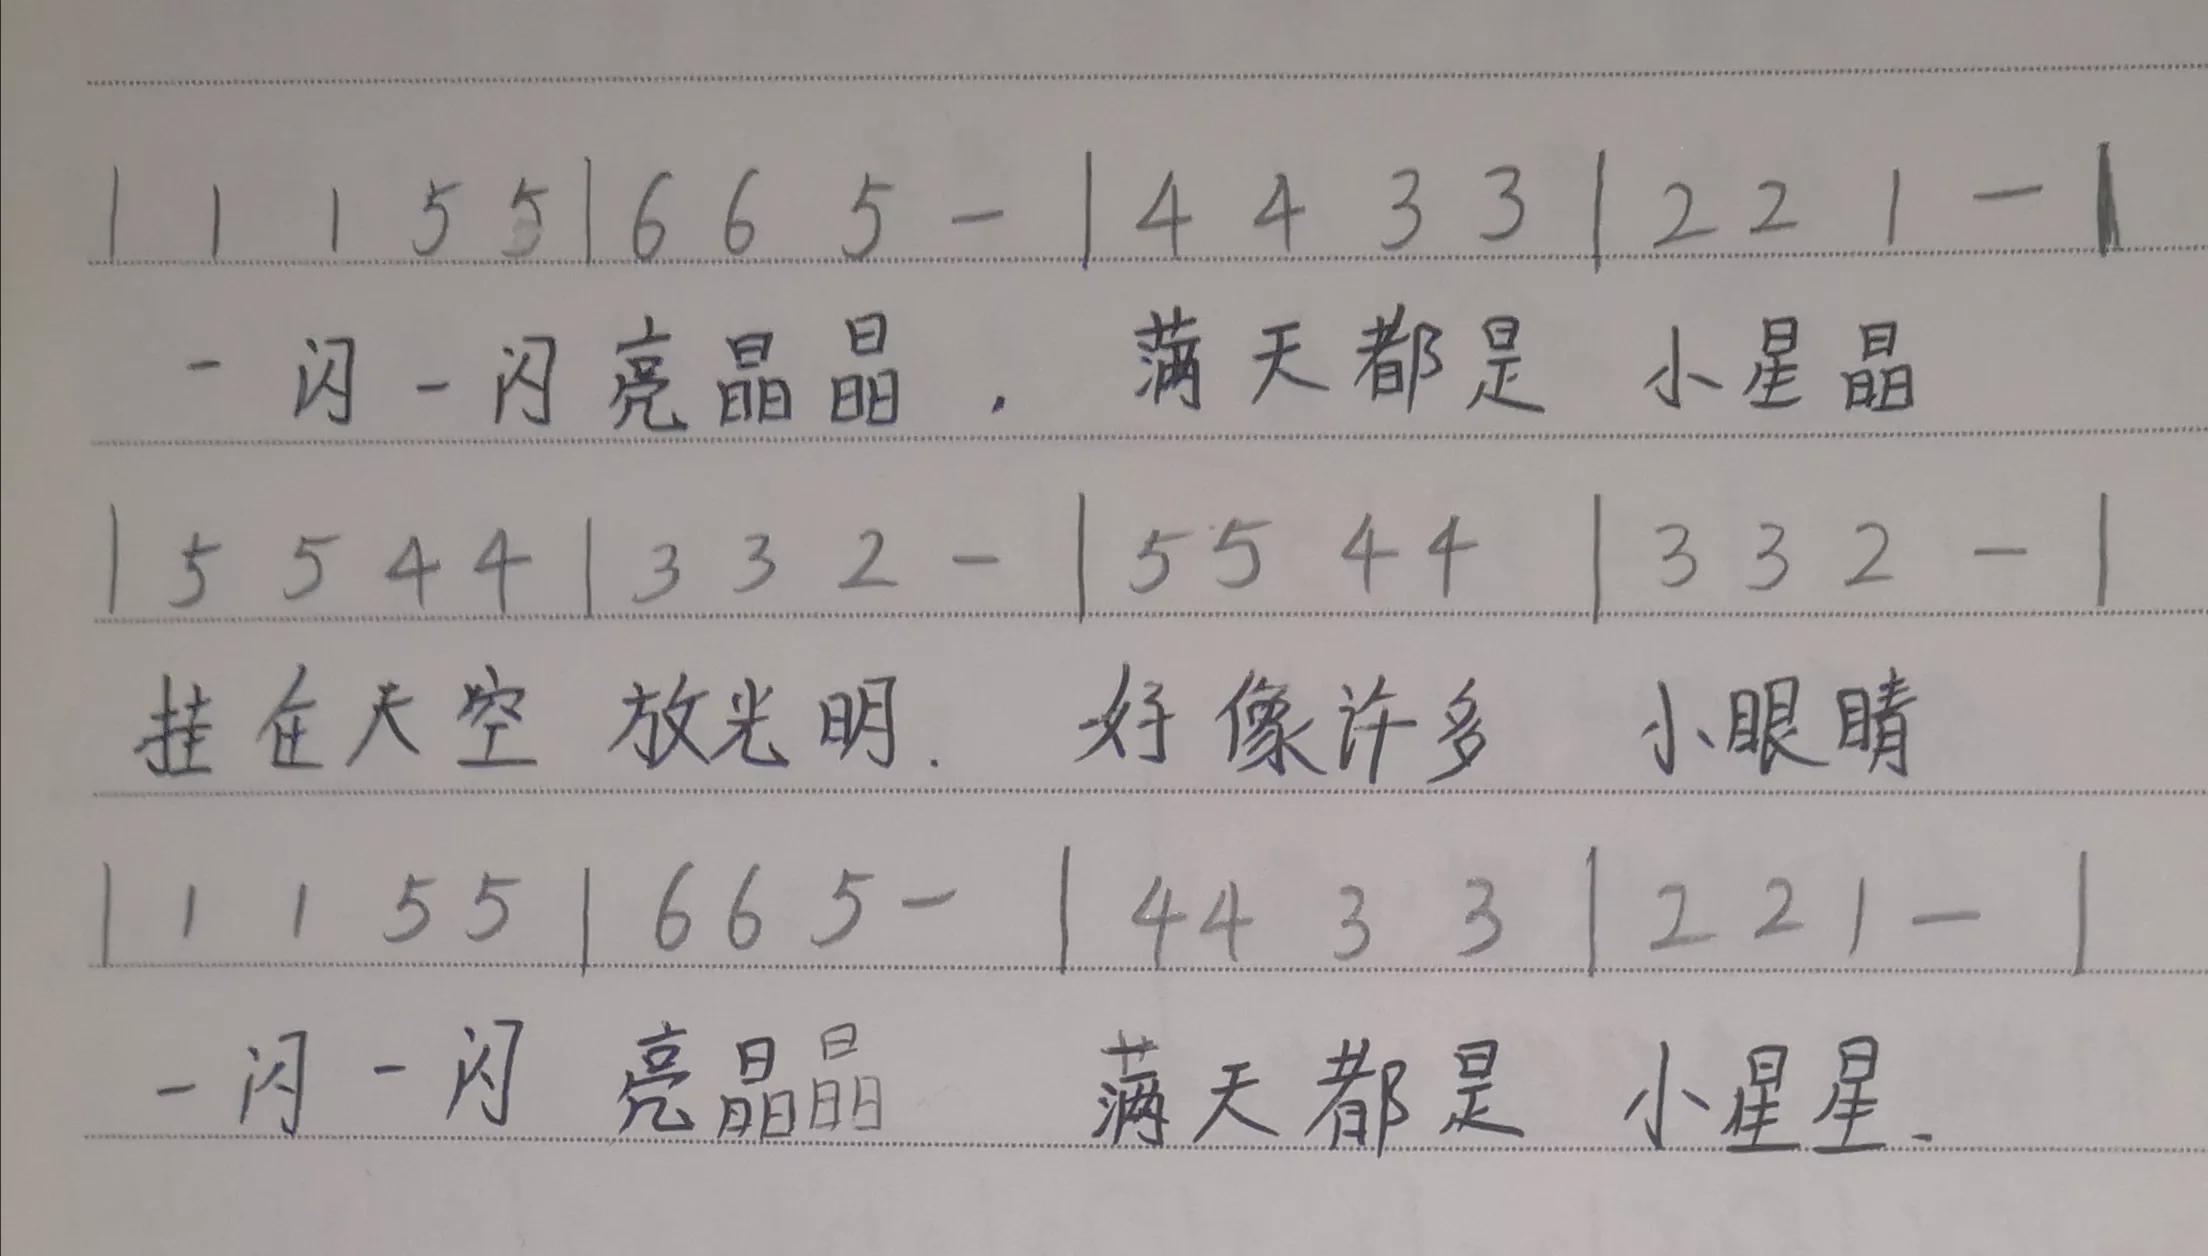 | 1 1 5 5 | 6 6 5 - | 4 4 3 3 | 2 2 1 - |
一闪一闪亮晶晶, 满天都是 小星晶
| 5 5 4 4 | 3 3 2 - | 5 5 4 4 | 3 3 2 - |
挂在天空 放光明. 好像许多 小眼睛
| 1 1 5 5 | 6 6 5 - | 4 4 3 3 | 2 2 1 - |
一闪一闪 亮晶晶 满天都是 小星星.